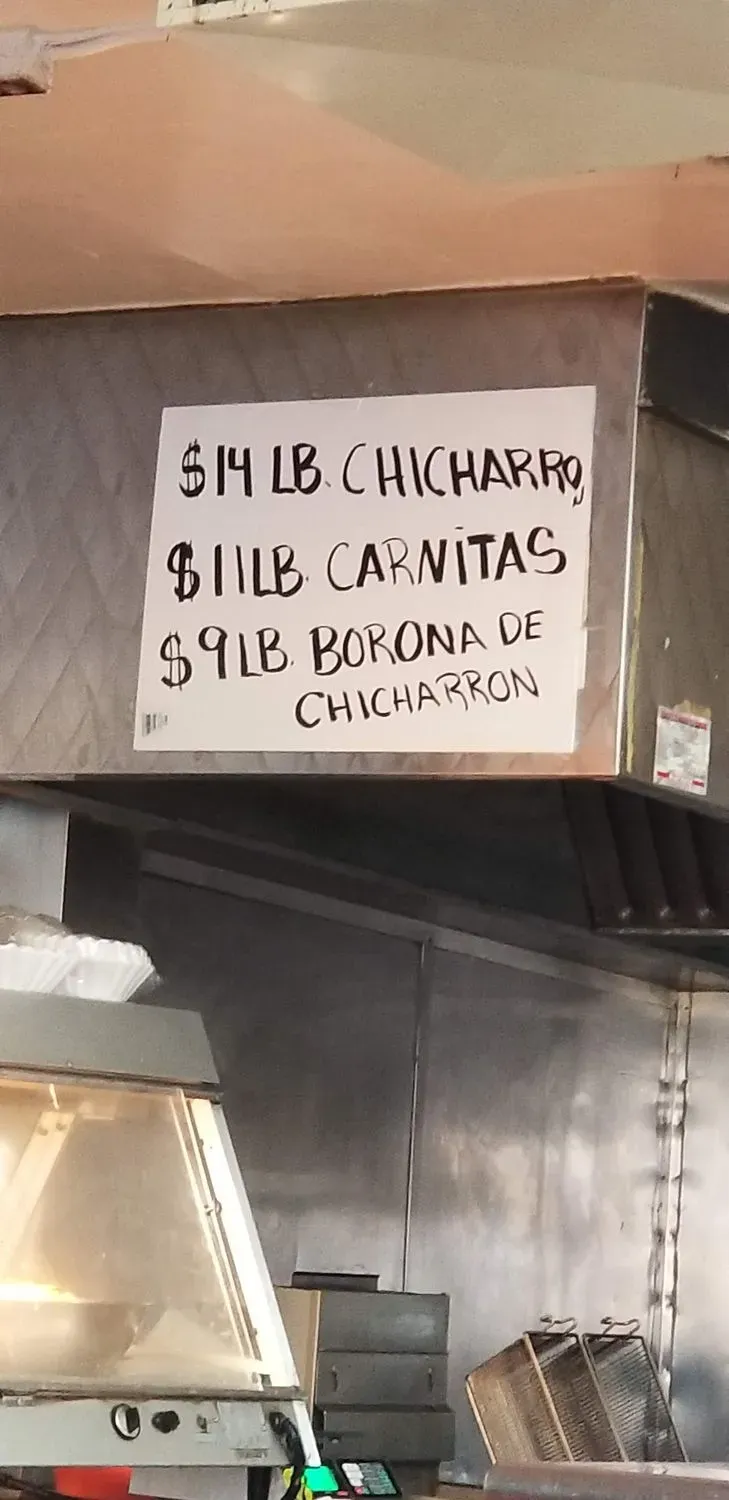 $14 LB. CHICHARRON
$11 LB. CARNITAS
$9 LB. BORONA DE
CHICHARRON